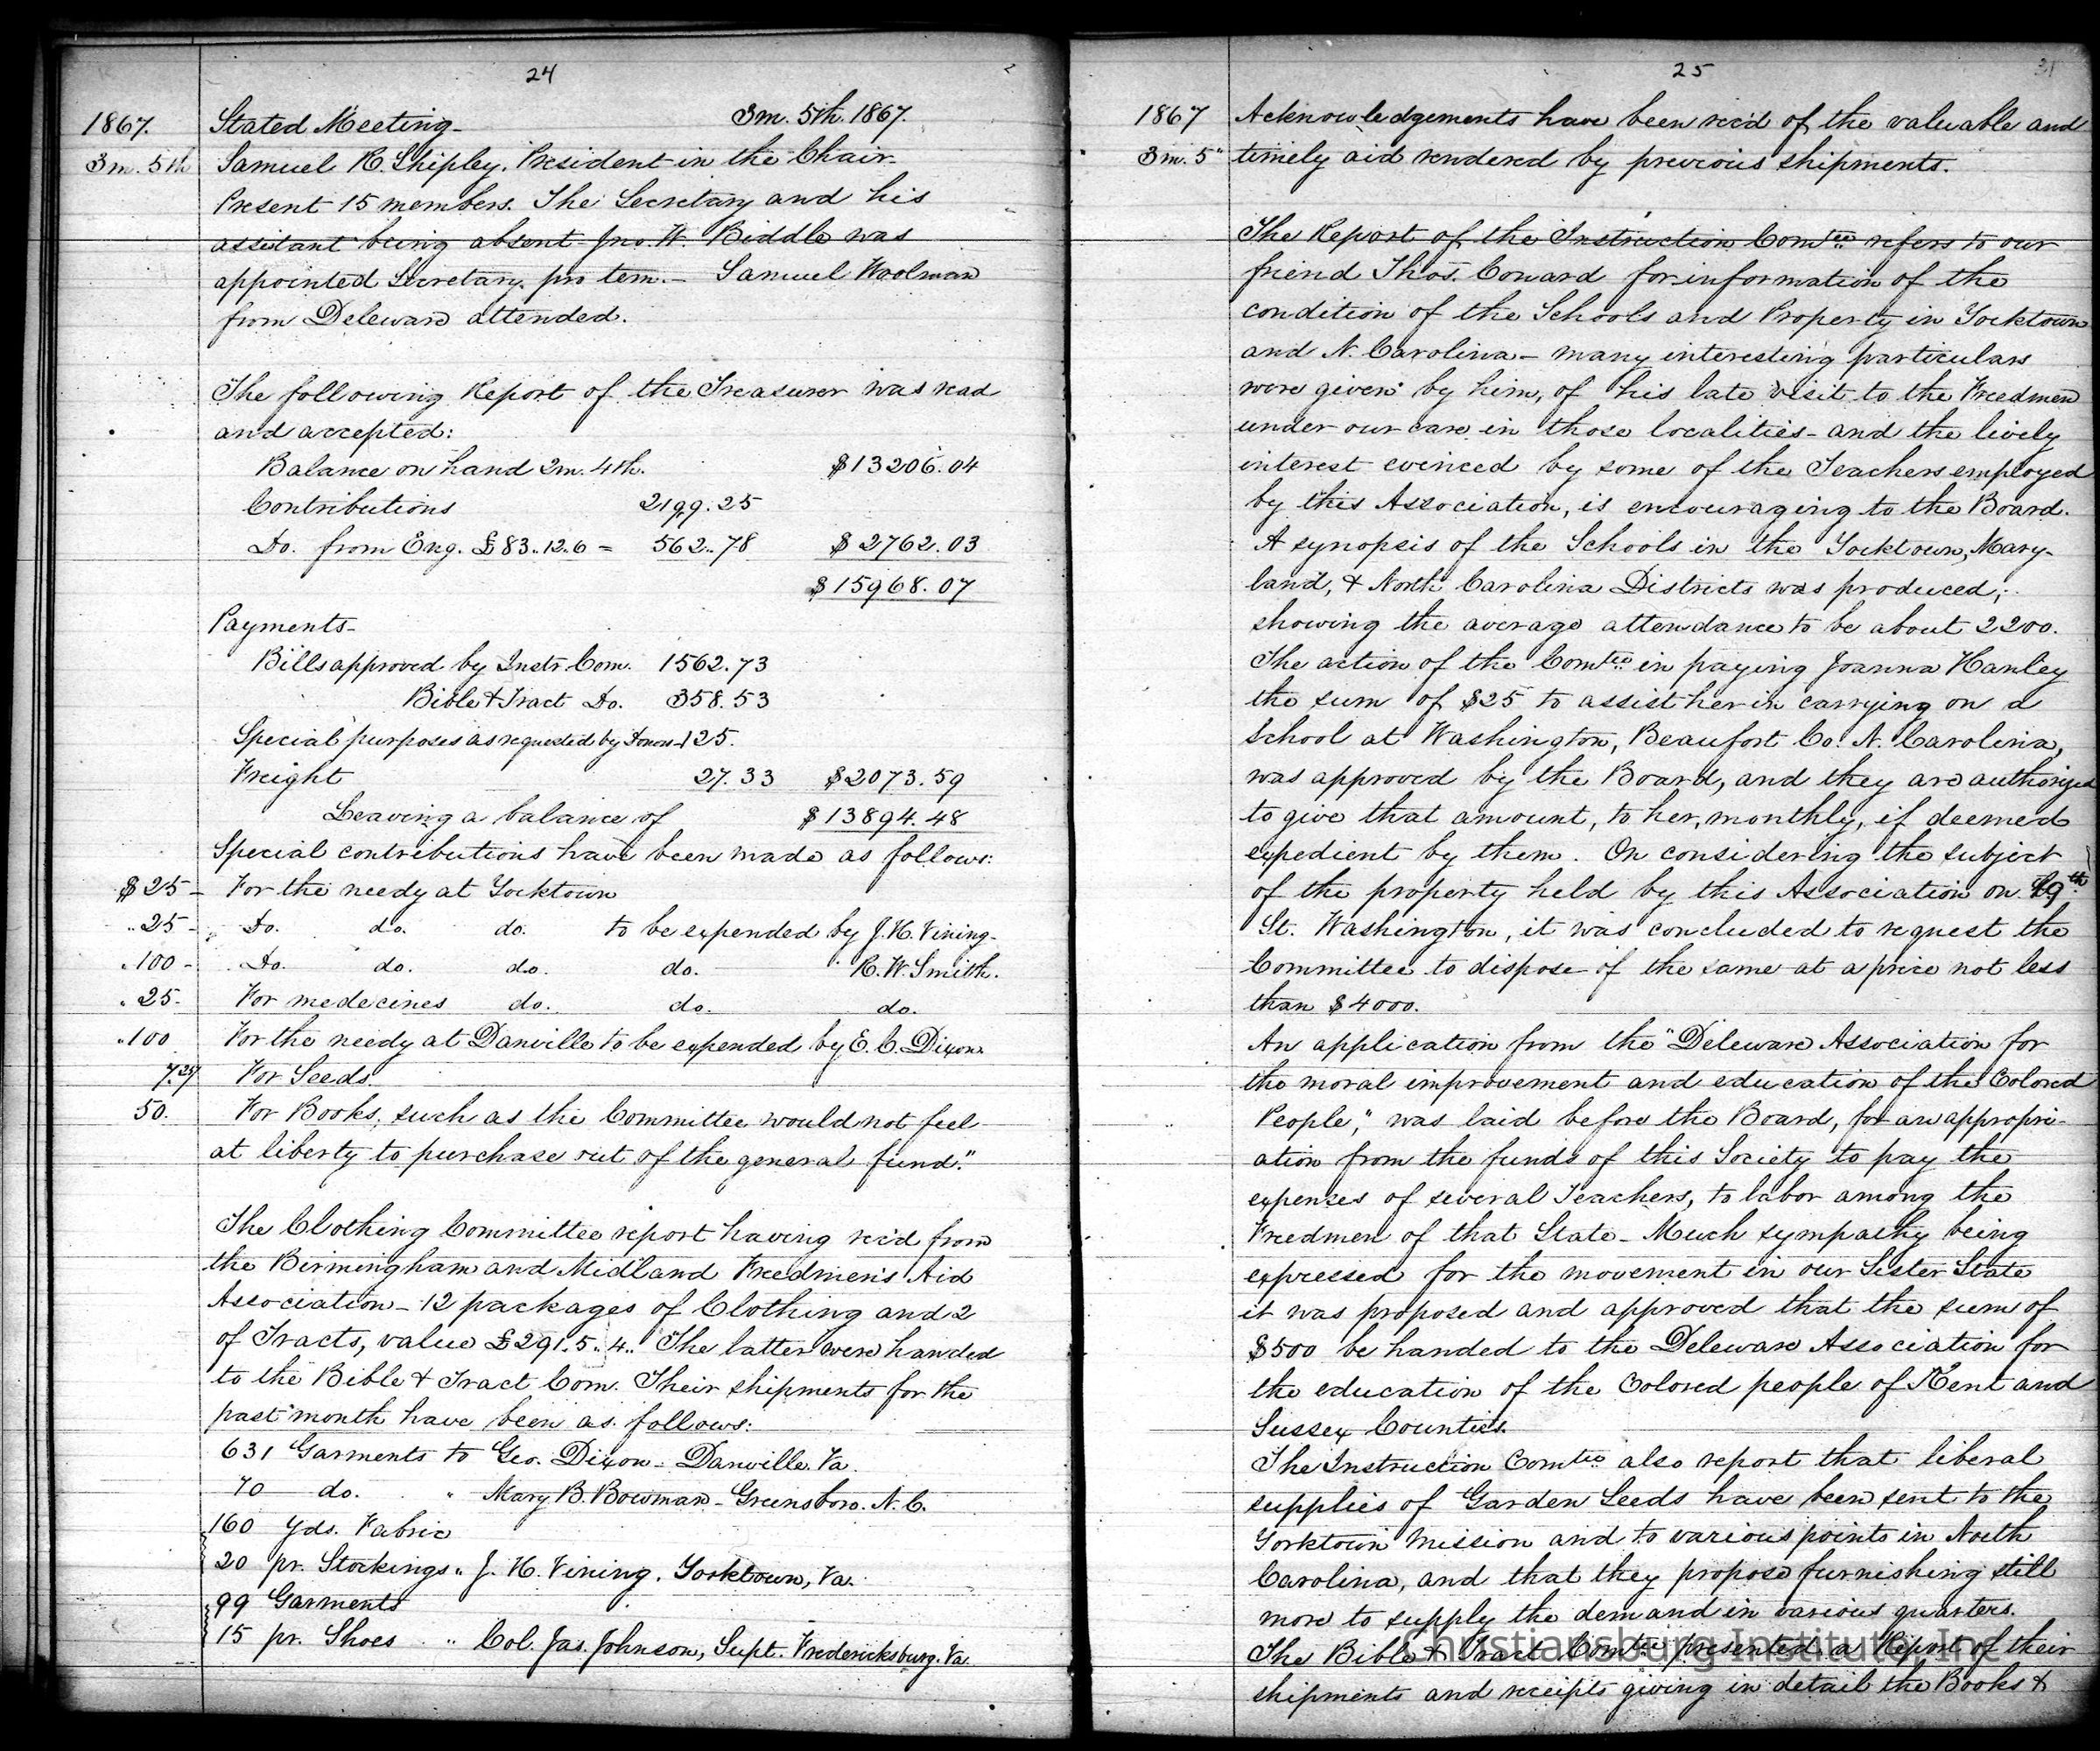 24
1867. Stated Meeting- 3m. 5th. 1867.
3m. 5th Samuel R. Shipley. President in the Chair-
Present 15 members. The Secretary and his
assistant being absent- Jno. W. Biddle was
appointed Secretary pro tem.- Samuel Woolman
from Deleware attended.
The following Report of the Treasurer was read
and accepted:
Balance on hand 2m. 4th. $13206.04
Contributions 2199.25
Do. from Eng. £83..12..6 = 562..78 $2762.03
$15968.07
Payments-
Bills approved by Instr. Com. 1562.73
Bible & Tract Do. 358.53
Special purposes as requested by Donors- 125.
Freight 27.33 $2073.59
Leaving a balance of $13894.48
Special contributions have been made as follows:
$25- For the needy at Yorktown
"25- Do. do. do. to be expended by J. H. Vining-
"100- Do. do. do. do. R. W. Smith.
"25- For medecines do. do. do.
"100 For the needy at Danville to be expended by E. C. Dixon.
7.25 For Seeds.
50. For Books, such as the Committee would not feel
at liberty to purchase out of the general fund."
The Clothing Committee report having rec'd from
the Birmingham and Midland Freedmen's Aid
Association- 12 packages of Clothing and 2
of Tracts, value £291..5..4.. The latter were handed
to the Bible & Tract Com. Their shipments for the
past month have been as follows:
631 Garments to Geo. Dixon- Danville. Va.
70 do. " Mary B. Bowman- Greensboro. N. C.
160 Yds. Fabric
20 pr. Stockings " J. H. Vining. Yorktown, Va.
99 Garments
15 pr. Shoes " Col. Jas. Johnson, Supt. Fredericksburg. Va.
25
31
1867 Acknowledgements have been rec'd of the valuable and
3m. 5" timely aid rendered by previous shipments.
The Report of the Instruction Comtee refers to our
friend Thos. Conard for information of the
condition of the Schools and Property in Yorktown
and N. Carolina- many interesting particulars
were given by him, of his late visit to the Freedmen
under our care in those localities- and the lively
interest evinced by some of the Teachers employed
by this Association, is encouraging to the Board.
A synopsis of the Schools in the Yorktown, Mary-
land, & North Carolina Districts was produced;
showing the average attendance to be about 2200.
The action of the Comtee in paying Joanna Hanley
the sum of $25 to assist her in carrying on a
School at Washington, Beaufort Co. N. Carolina,
was approved by the Board, and they are authorized
to give that amount, to her, monthly, if deemed
expedient by them. On considering the subject
of the property held by this Association on 19th
St. Washington, it was concluded to request the
Committee to dispose of the same at a price not less
than $4000.
An application from the "Deleware Association for
the moral improvement and education of the Colored
People," was laid before the Board, for an appropri-
ation from the funds of this Society to pay the
expenses of several Teachers, to labor among the
Freedmen of that State- Much sympathy being
expressed for the movement in our Sister State
it was proposed and approved that the sum of
$500 be handed to the Deleware Association for
the education of the Colored people of Kent and
Sussex Counties.
The Instruction Comtee also report that liberal
supplies of Garden Seeds have been sent to the
Yorktown Mission and to various points in North
Carolina, and that they propose furnishing still
more to supply the demand in various quarters.
The Bible & Tract Comtee presented a Report of their
shipments and receipts giving in detail the Books &
Christiansburg Institute, Inc